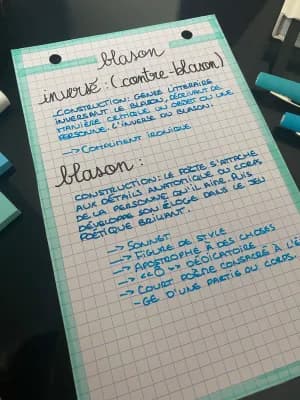 blason
inversé : (contre-blason)
CONSTRUCTION: GENRE LITTERAIRE
INVERSANT LE BLASON, DÉCRIVANT DE
MANIÈRE CRITIQUE UN OBJET OU UNE
PERSONNE. L'INVERSE DU BLASON.
-> COMPLIMENT IRONIQUE
blason :
CONSTRUCTION: LE POÈTE S'ATTACHE
AUX DÉTAILS ANATOMIQUE DU CORPS
DE LA PERSONNE QU'IL AIME PUIS
DÉVELOPPE SON ÉLOGE DANS LE JEU
POÉTIQUE BRILLANT.
-> SONNET
-> FIGURE DE STYLE
-> APOSTROPHE À DES CHOSES
-> «Ô» DÉDICATOIRE
-> COURT POÈME CONSACRÉ À L'É
-GE D'UNE PARTIE DU CORPS.